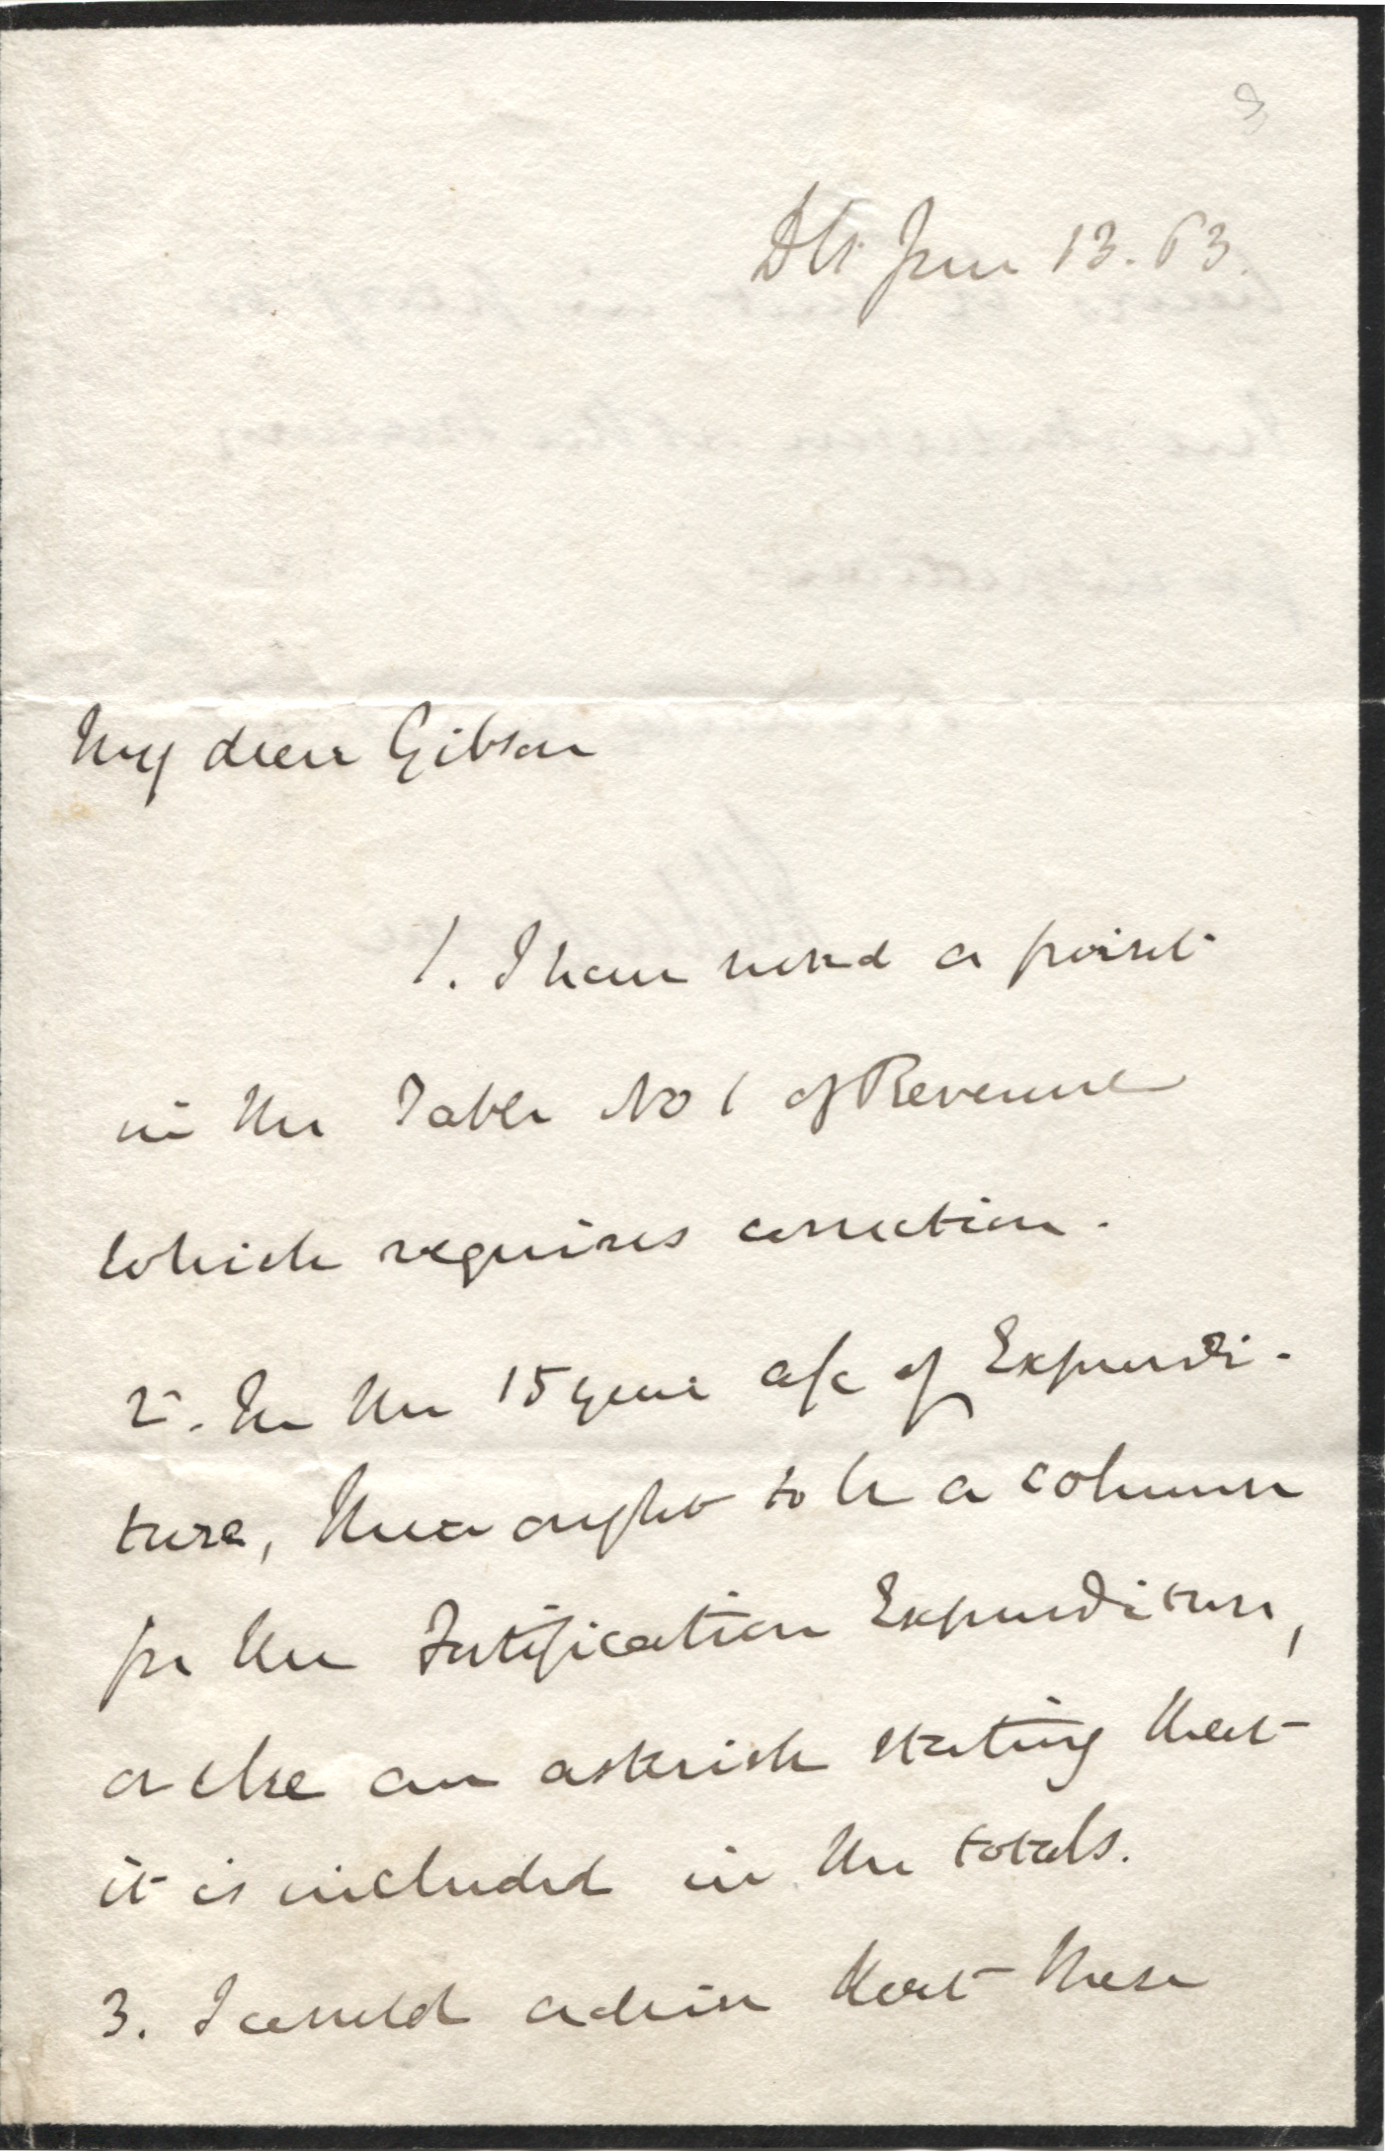 Jun 13. 63.
My dear Gibson
1. I have noted a point
in the Table No 1 of Revenue
which requires correction.
2. In the 15 year a/c of Expendi-
ture, there ought to be a column
for the Fortification Expenditure,
or else an asterisk stating that
it is included in the totals.
3. I would advise that these